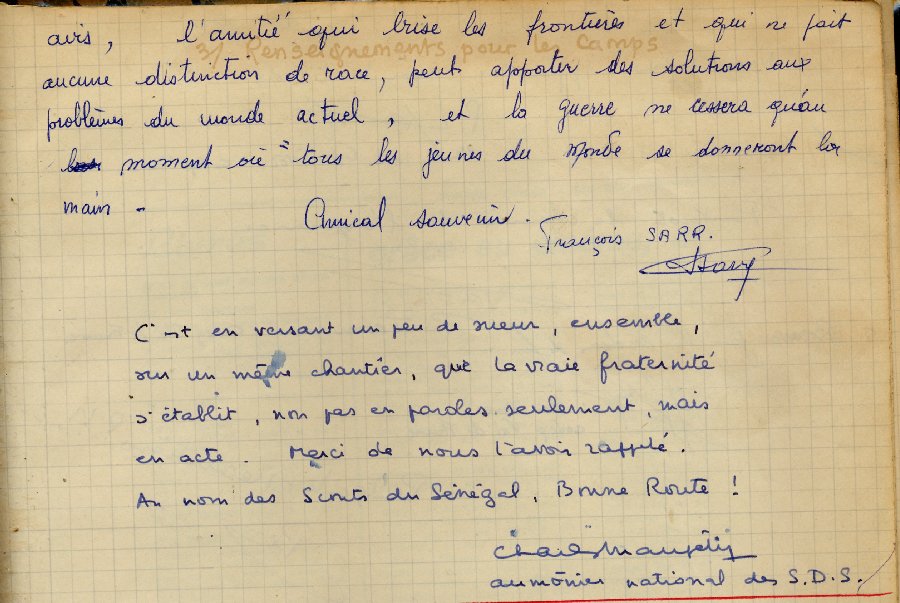 avis, l'amitié qui brise les frontières et qui ne fait
3/ Renseignements pour les Camps
aucune distinction de race, peut apporter des solutions aux
problèmes du monde actuel, et la guerre ne cessera qu'au
moment où "tous les jeunes du monde se donneront la
main -
Amical souvenir.
François SARR.
C'est en versant un peu de sueur, ensemble,
sur un même chantier, que la vraie fraternité
s'établit, non pas en paroles seulement, mais
en acte. Merci de nous l'avoir rappelé.
Au nom des Scouts du Sénégal, Bonne Route !
aumônier national des S.D.S.